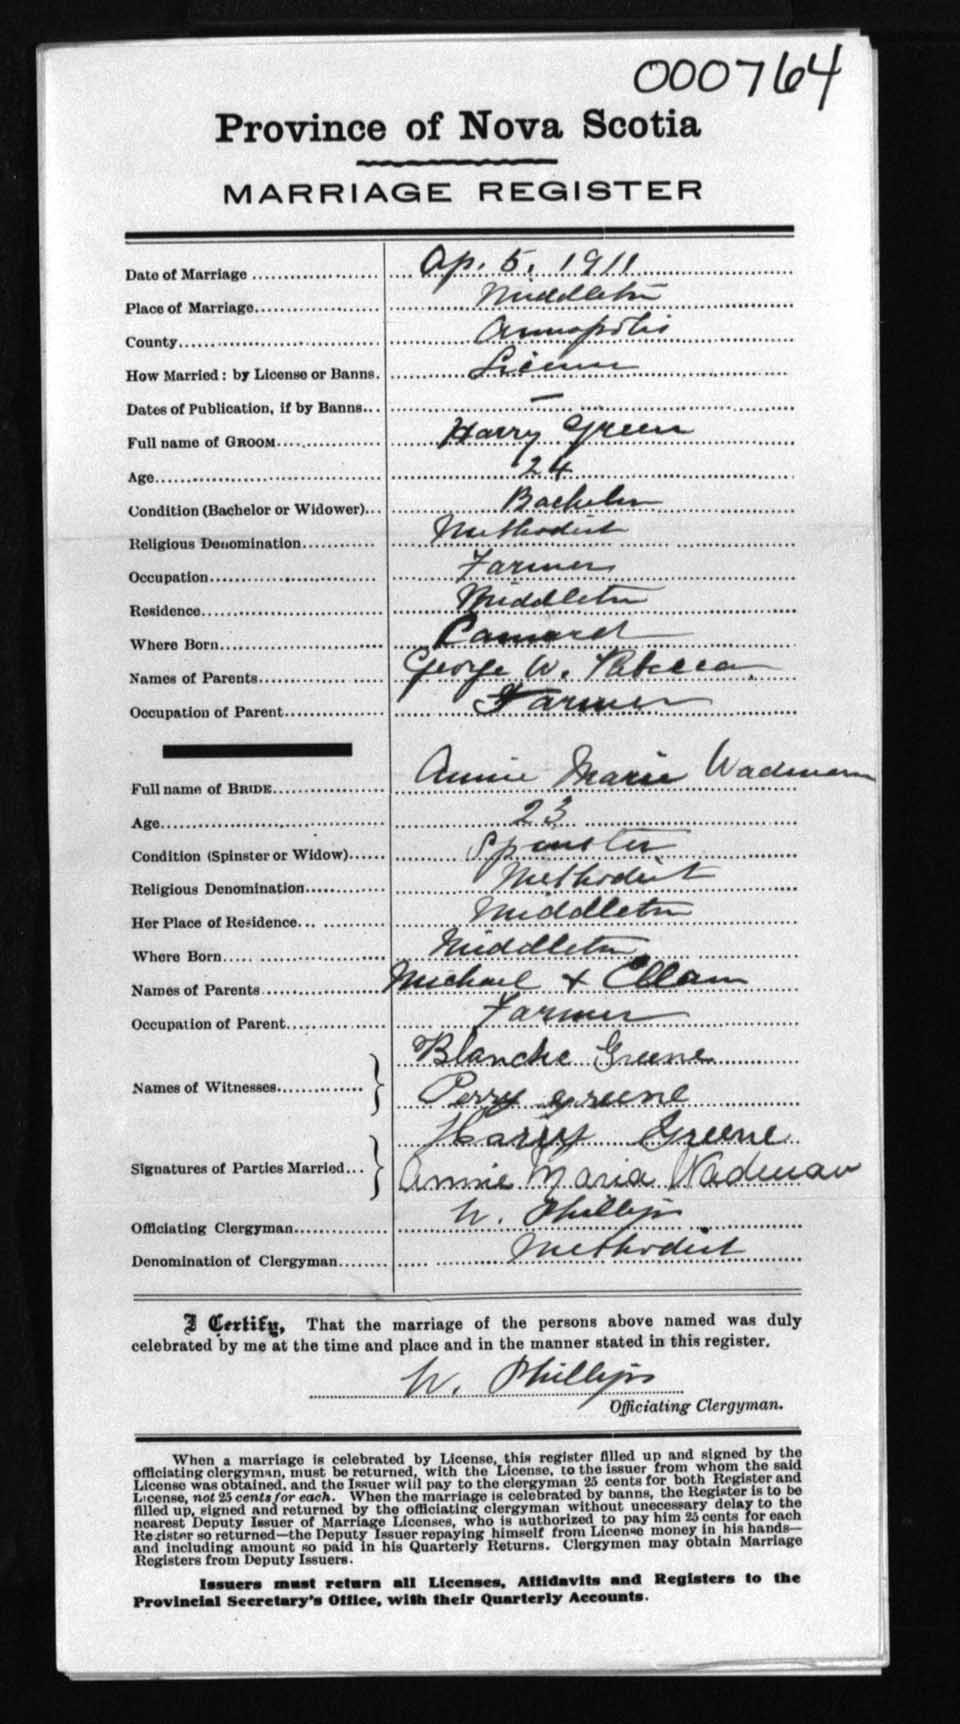 000764
Province of Nova Scotia
MARRIAGE REGISTER
Date of Marriage Ap. 5. 1911
Place of Marriage Middleton
County Annapolis
How Married: by License or Banns. License
Dates of Publication, if by Banns —
Full name of GROOM Harry Green
Age 24
Condition (Bachelor or Widower) Bachelor
Religious Denomination Methodist
Occupation Farmer
Residence Middleton
Where Born
Names of Parents George W. Rebecca
Occupation of Parent Farmer
Full name of BRIDE Annie Marie Wadman
Age 23
Condition (Spinster or Widow) Spinster
Religious Denomination Methodist
Her Place of Residence Middleton
Where Born Middleton
Names of Parents Michael +
Occupation of Parent Farmer
Names of Witnesses Blanche Greene
Perry Greene
Signatures of Parties Married Harry Greene
Annie Maria Wadman
Officiating Clergyman W. Phillips
Denomination of Clergyman Methodist
I Certify, That the marriage of the persons above named was duly
celebrated by me at the time and place and in the manner stated in this register.
W. Phillips
Officiating Clergyman.
When a marriage is celebrated by License, this register filled up and signed by the
officiating clergyman, must be returned, with the License, to the issuer from whom the said
License was obtained, and the Issuer will pay to the clergyman 25 cents for both Register and
License, not 25 cents for each. When the marriage is celebrated by banns, the Register is to be
filled up, signed and returned by the officiating clergyman without unnecessary delay to the
nearest Deputy Issuer of Marriage Licenses, who is authorized to pay him 25 cents for each
Register so returned—the Deputy Issuer repaying himself from License money in his hands—
and including amount so paid in his Quarterly Returns. Clergymen may obtain Marriage
Registers from Deputy Issuers.
Issuers must return all Licenses, Affidavits and Registers to the
Provincial Secretary's Office, with their Quarterly Accounts.